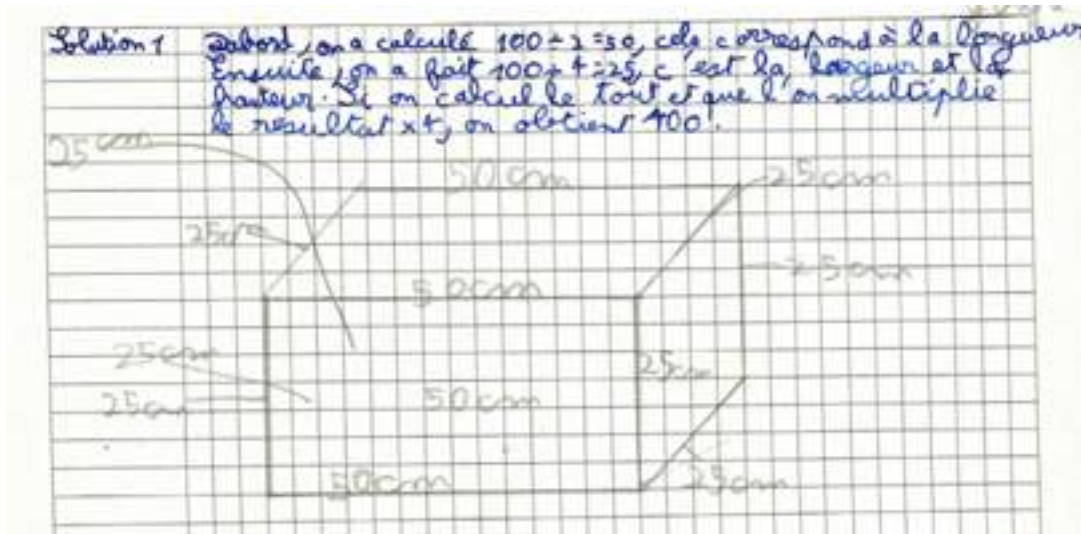 Solution 1 Dabord, on a calculé 100 ÷ 2 = 50, cela correspond à la longueur
Ensuite, on a fait 100 ÷ 4 = 25, c'est la largeur et la
hauteur. Si on calcul le tout et que l'on multiplie
le resultat x4, on obtient 400.
25 cm
50 cm
25cm
25cm
50cm
25cm
25cm
25cm
50cm
50cm
25cm